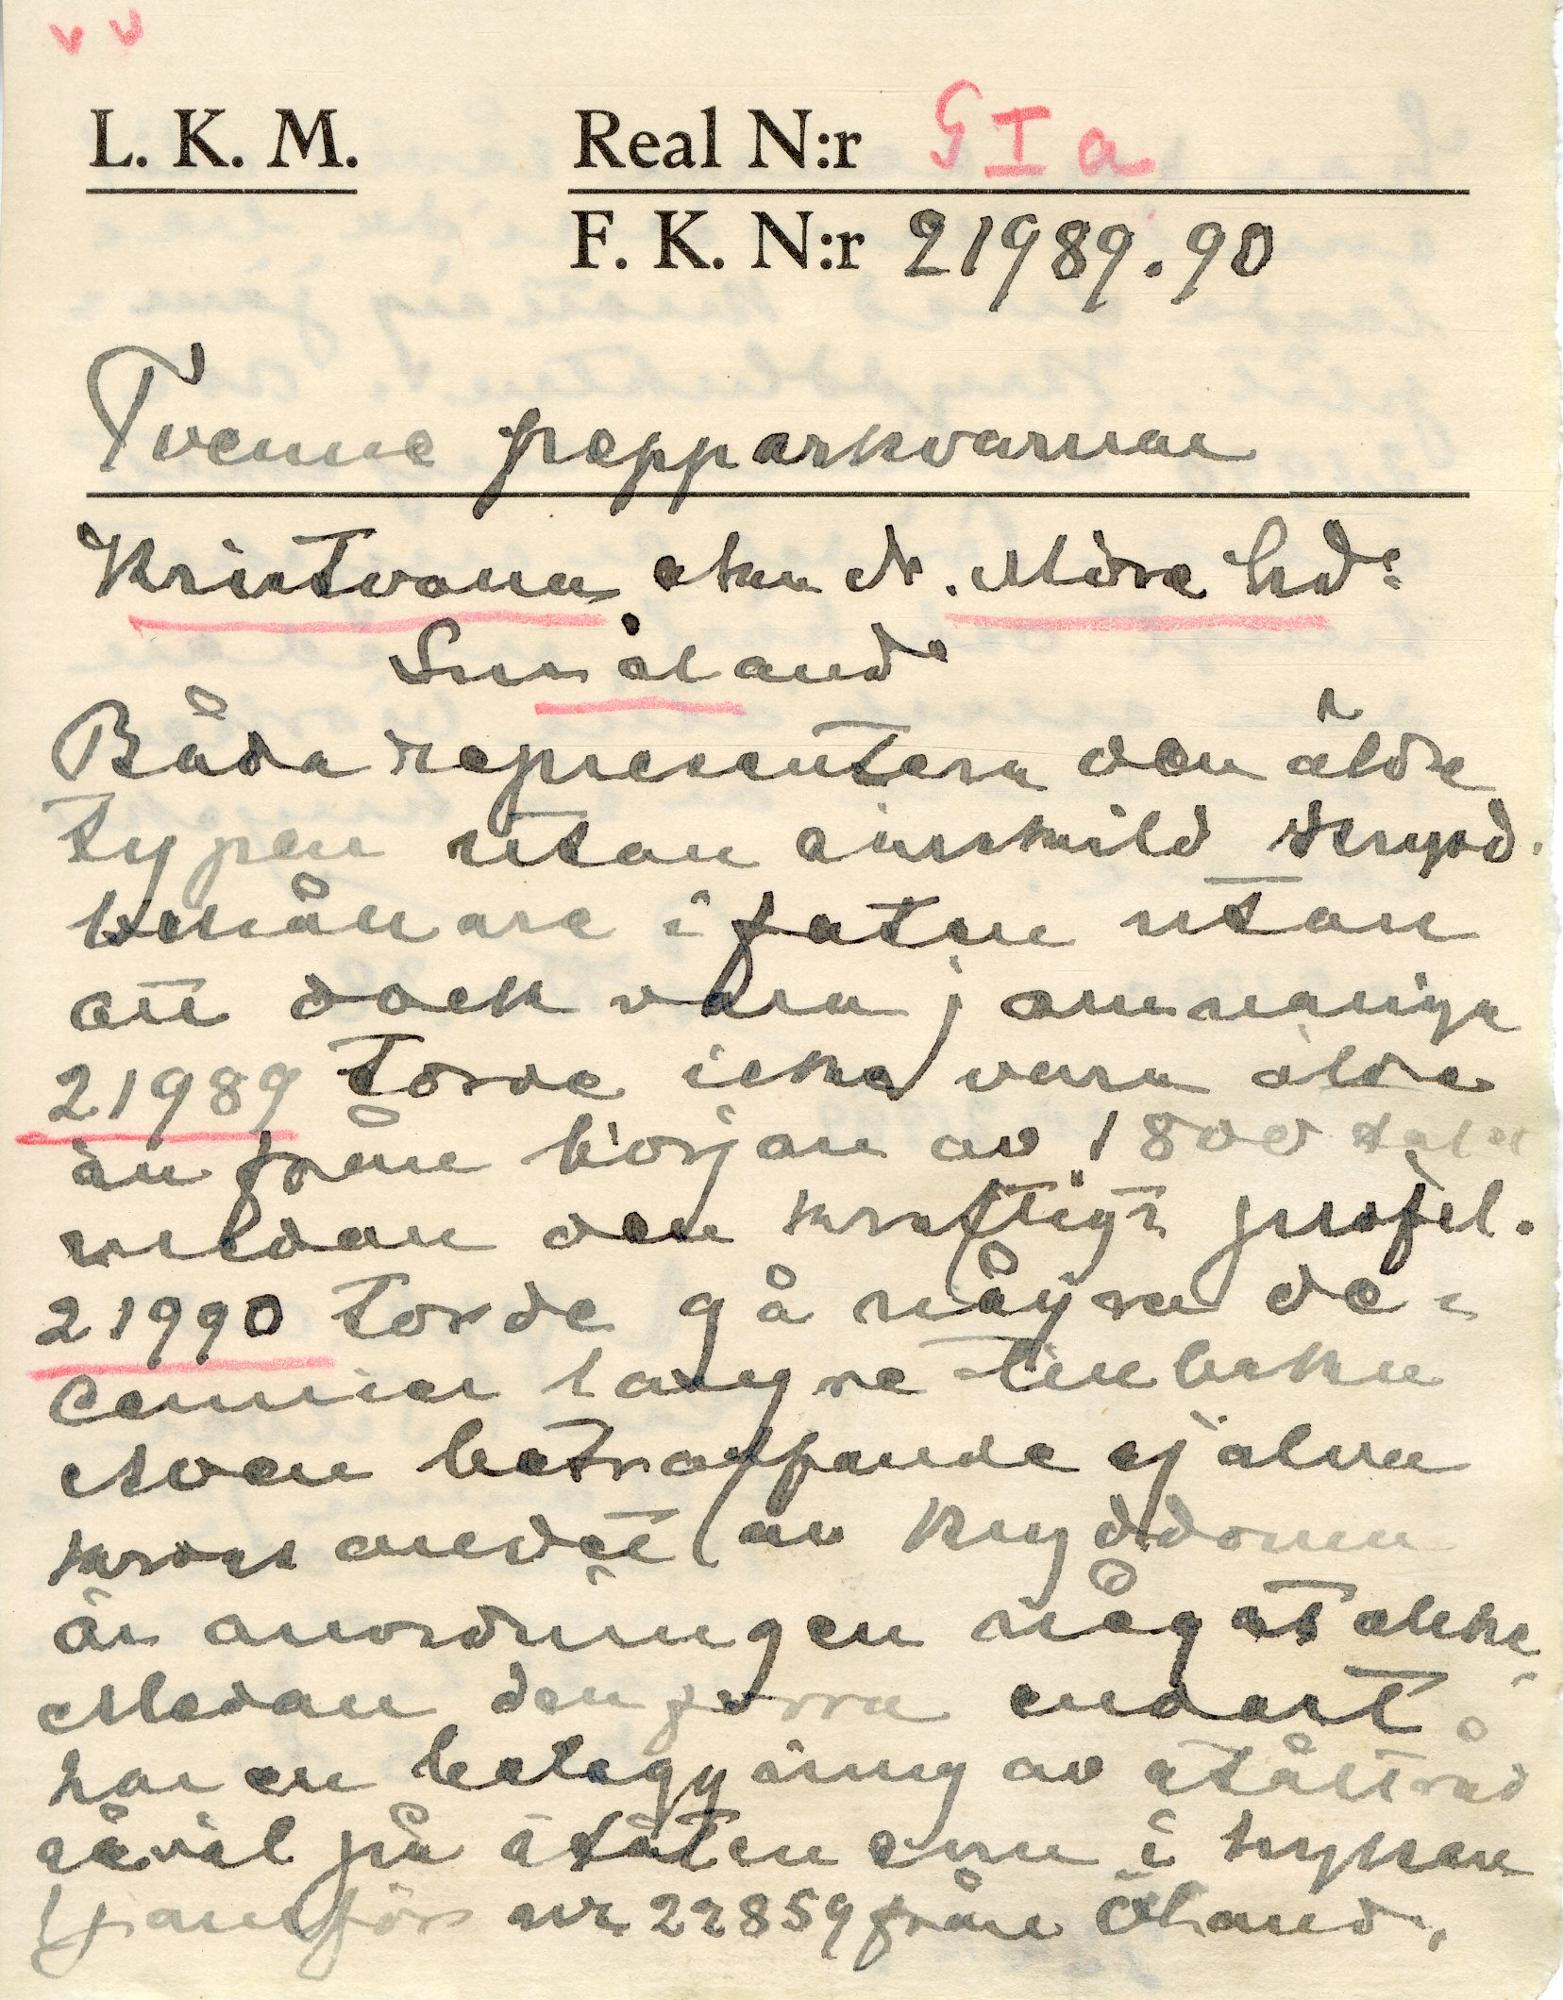 v v
L. K. M. Real N:r G I a
F. K. N:r 21989.90
Tvenne pepparkvarnar
Kristvalla skn N. Möre hd:
Småland
Båda representera den äldre
typen utan särskild krydd-
behållare i foten utan
att dock vara jämnåriga
21989 torde icke vara äldre
än från början av 1800 talet
medan den kraftigt profil.
21990 torde gå några de-
cennier längre tillbaka
Även beträffande själva
krossandet av kryddorna
är anordningen något olika
Medan den förra endast
har en beläggning av ståltråd
såväl på stöten som i hylsan
(jämför nr 22859 från Öland,